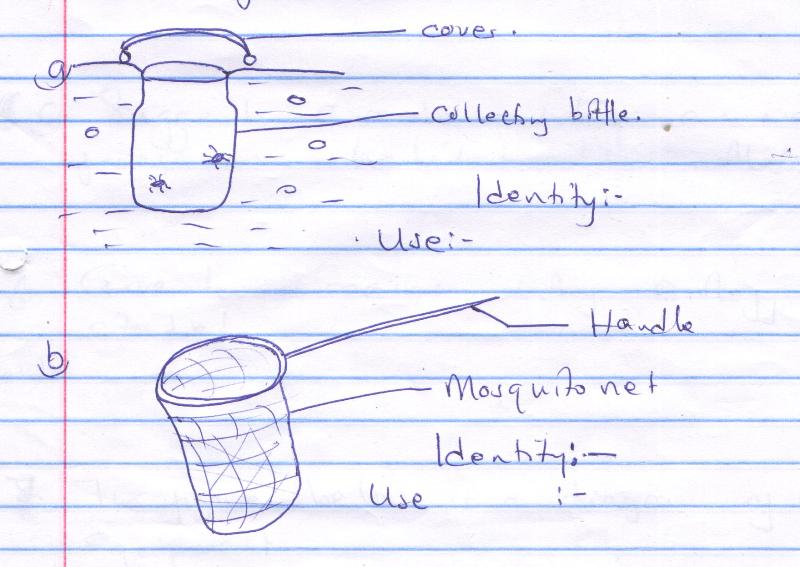 cover.
a
collecting bottle.
Identity:-
Use:-
b
Handle
Mosquito net
Identity:-
Use :-